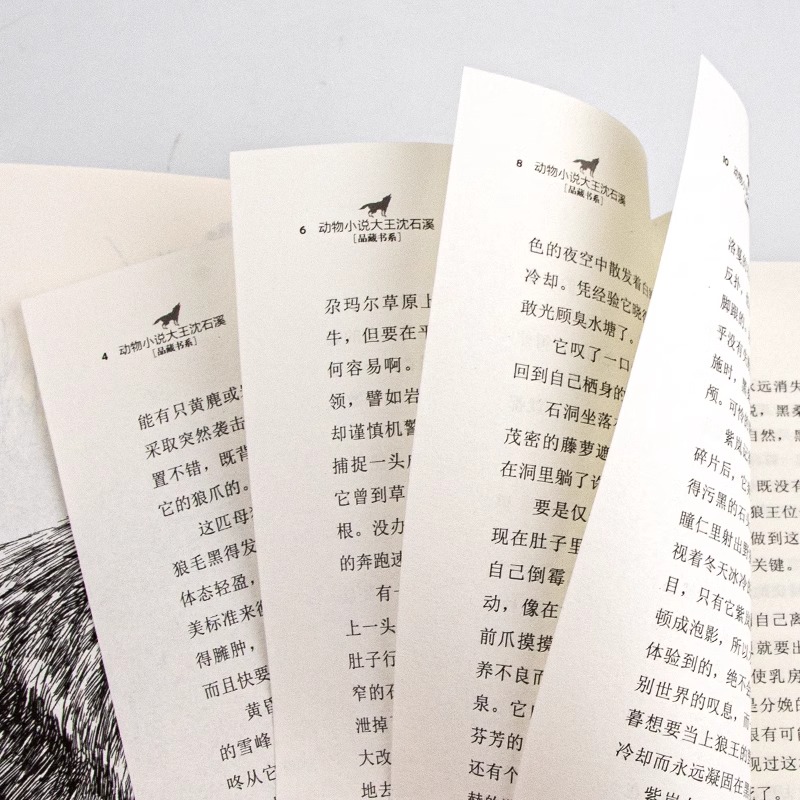 4 动物小说大王沈石溪
[品藏书系]
能有只黄麂或
采取突然袭击
置不错，既背
它的狼爪的。
这匹母
狼毛黑得发
体态轻盈，
美标准来
得臃肿，
而且快要
黄昏
的雪峰
咚从它
6 动物小说大王沈石溪
[品藏书系]
尕玛尔草原上
牛，但要在平
何容易啊。
领，譬如岩
却谨慎机警
捕捉一头
它曾到草
根。没办
的奔跑速
有一
上一头
肚子行
窄的石
泄掉
大改
地去
8 动物小说大王沈石溪
[品藏书系]
色的夜空中散发着白
冷却。凭经验它晓得
敢光顾臭水塘了。
它叹了一口
回到自己栖身的
石洞坐落
茂密的藤萝遮
在洞里躺了许
要是仅
现在肚子里
自己倒霉
动，像在
前爪摸摸
养不良而
泉。它
芬芳的
还有个
10 动物
反扑，
脚跟的
乎没有
施时，黑
颅。可怜的
紫岚
碎片后，它
得污黑的石
瞳仁里射出
视着冬天冰冷
目，只有它紫
顿成泡影，所以
体验到的，绝不
别世界的叹息，而
暮想要当上狼王的
冷却而永远凝固在
紫岚
永远消失
说，黑桑
自然，黑
既没有
狼王位
做到这
关键。
自己离
就要出
使乳房
是分娩的
很有可能
见过这
了。